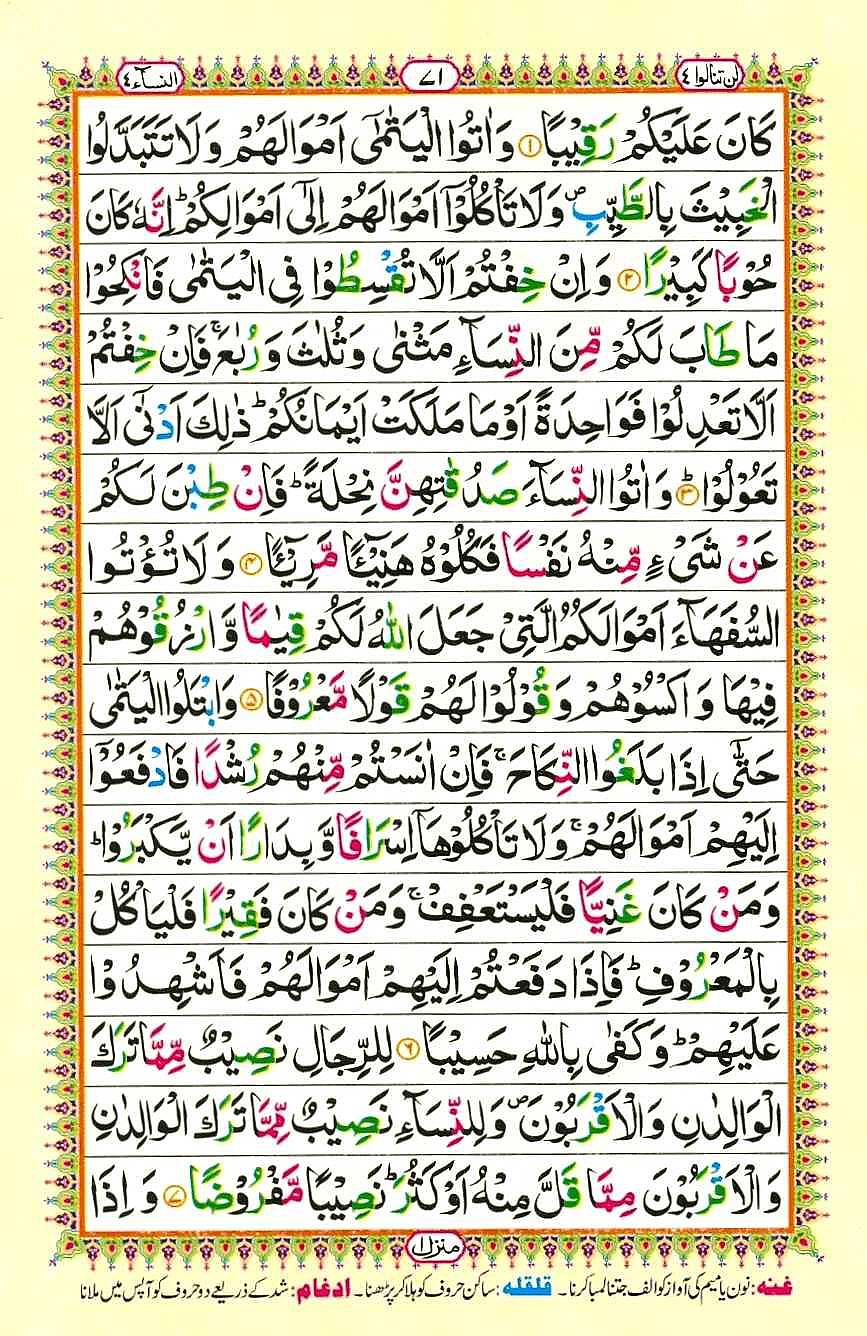 لن تنالوا ٤ ٧١ النسآء ٤
كَانَ عَلَيْكُمْ رَقِيْبًا ۝١ وَاٰتُوا الْيَتٰمٰٓى اَمْوَالَهُمْ وَلَا تَتَبَدَّلُوا
الْخَبِيْثَ بِالطَّيِّبِ ۪ وَلَا تَاْكُلُوْٓا اَمْوَالَهُمْ اِلٰٓى اَمْوَالِكُمْ ؕ اِنَّهٗ كَانَ
حُوْبًا كَبِيْرًا ۝٢ وَاِنْ خِفْتُمْ اَلَّا تُقْسِطُوْا فِى الْيَتٰمٰى فَانْكِحُوْا
مَا طَابَ لَكُمْ مِّنَ النِّسَآءِ مَثْنٰى وَثُلٰثَ وَرُبٰعَ ۚ فَاِنْ خِفْتُمْ
اَلَّا تَعْدِلُوْا فَوَاحِدَةً اَوْ مَا مَلَكَتْ اَيْمَانُكُمْ ؕ ذٰلِكَ اَدْنٰٓى اَلَّا
تَعُوْلُوْا ؕ۝٣ وَاٰتُوا النِّسَآءَ صَدُقٰتِهِنَّ نِحْلَةً ؕ فَاِنْ طِبْنَ لَكُمْ
عَنْ شَىْءٍ مِّنْهُ نَفْسًا فَكُلُوْهُ هَنِيْٓـًٔا مَّرِيْٓـًٔا ۝٤ وَلَا تُؤْتُوا
السُّفَهَآءَ اَمْوَالَكُمُ الَّتِىْ جَعَلَ اللّٰهُ لَكُمْ قِيٰمًا وَّارْزُقُوْهُمْ
فِيْهَا وَاكْسُوْهُمْ وَقُوْلُوْا لَهُمْ قَوْلًا مَّعْرُوْفًا ۝٥ وَابْتَلُوا الْيَتٰمٰى
حَتّٰٓى اِذَا بَلَغُوا النِّكَاحَ ۚ فَاِنْ اٰنَسْتُمْ مِّنْهُمْ رُشْدًا فَادْفَعُوْٓا
اِلَيْهِمْ اَمْوَالَهُمْ ۚ وَلَا تَاْكُلُوْهَآ اِسْرَافًا وَّبِدَارًا اَنْ يَّكْبَرُوْا ؕ
وَمَنْ كَانَ غَنِيًّا فَلْيَسْتَعْفِفْ ۚ وَمَنْ كَانَ فَقِيْرًا فَلْيَاْكُلْ
بِالْمَعْرُوْفِ ؕ فَاِذَا دَفَعْتُمْ اِلَيْهِمْ اَمْوَالَهُمْ فَاَشْهِدُوْا
عَلَيْهِمْ ؕ وَكَفٰى بِاللّٰهِ حَسِيْبًا ۝٦ لِلرِّجَالِ نَصِيْبٌ مِّمَّا تَرَكَ
الْوَالِدٰنِ وَالْاَقْرَبُوْنَ ۪ وَلِلنِّسَآءِ نَصِيْبٌ مِّمَّا تَرَكَ الْوَالِدٰنِ
وَالْاَقْرَبُوْنَ مِمَّا قَلَّ مِنْهُ اَوْ كَثُرَ ؕ نَصِيْبًا مَّفْرُوْضًا ۝٧ وَاِذَا
منزل ١
غنه: نون یا میم کی آواز کو الف جتنا لمبا کرنا۔ قلقله: ساکن حروف کو ہلا کر پڑھنا۔ ادغام: شد کے ذریعے دو حروف کو آپس میں ملانا